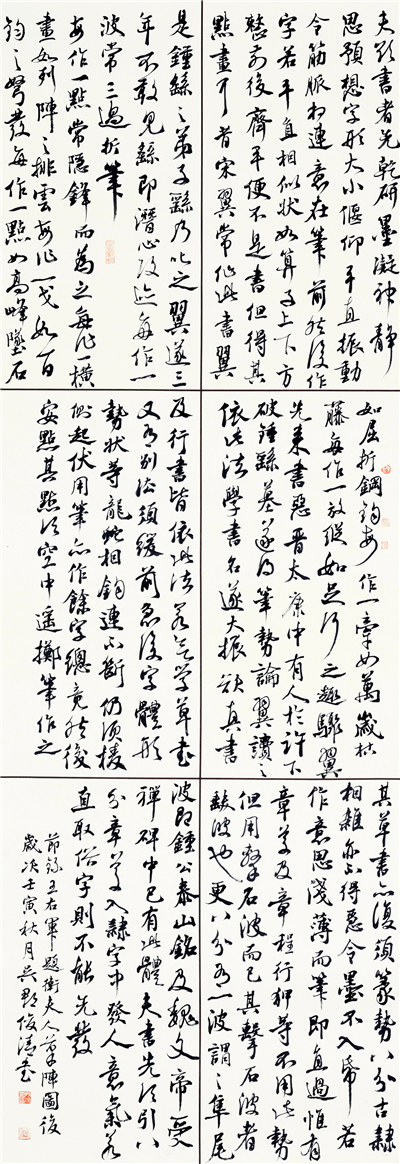 夫欲書者先乾研墨凝神靜
思預想字形大小偃仰平直振動
令筋脈相連意在筆前然後作
字若平直相似狀如算子上下方
整前後齊平便不是書但得其
點畫耳昔宋翼常作此書翼
是鍾繇之弟子繇乃叱之翼遂三
年不敢見繇即潛心改迹每作一
波常三過折筆
每作一點常隱鋒而為之每作一橫
畫如列陣之排雲每作一戈如百
鈞之弩發每作一點如高峰墜石
如屈折鋼鉤每作一牽如萬歲枯
藤每作一放縱如足行之趣驟翼
先來書惡晉太康中有人於許下
破鍾繇墓遂得筆勢論翼讀之
依此法學書名遂大振欲真書
及行書皆依此法若學草書
又有別法須緩前急後字體形
勢狀等龍蛇相鉤連不斷仍須棱
側起伏用筆亦作餘字總竟然後
安點其點須空中遙擲筆作之
其草書亦復須篆勢八分古隸
相雜亦不得急令墨不入紙若
作意思淺薄而筆即直過惟有
章草及章程行狎等不用此勢
但用擊石波而已其擊石波者
缺波也更八分有一波謂之隼尾
波即鍾公泰山銘及魏文帝受
禪碑中已有此體夫書先須引八
分章草入隸字中發人意氣若
直取俗字則不能先發
節錄王右軍題衛夫人筆陣圖後
歲次壬寅秋月吳郡俊書